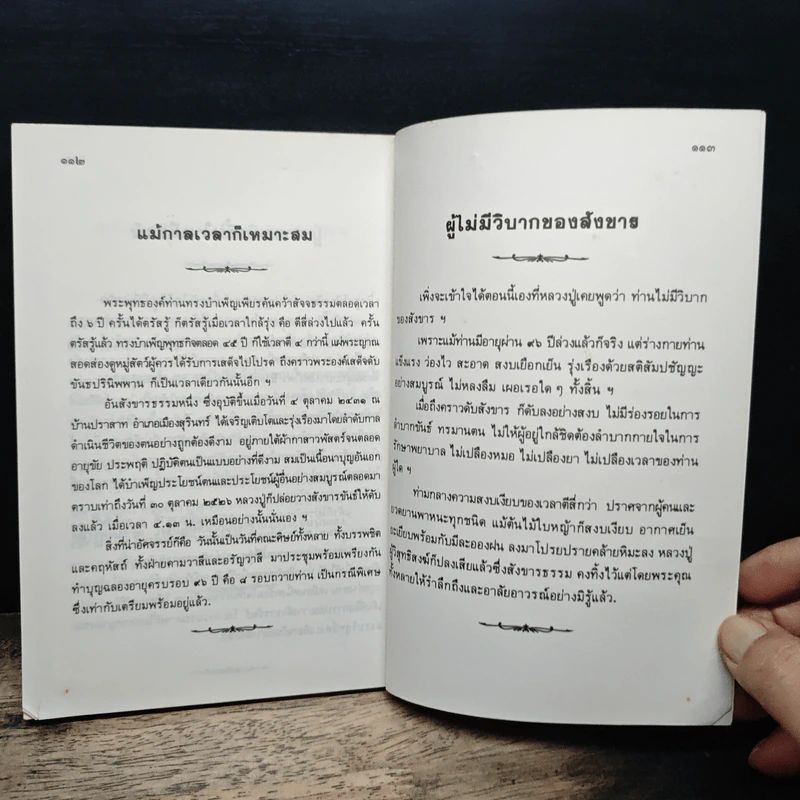 ๑๑๒
แม้กาลเวลาก็เหมาะสม
พระพุทธองค์ท่านทรงบำเพ็ญเพียรค้นคว้าสัจจธรรมตลอดเวลา
ถึง ๖ ปี ครั้นได้ตรัสรู้ ก็ตรัสรู้เมื่อเวลาใกล้รุ่ง คือ ตีสี่ล่วงไปแล้ว ครั้น
ตรัสรู้แล้ว ทรงบำเพ็ญพุทธกิจตลอด ๔๕ ปี ก็ใช้เวลาตี ๔ กว่านี้ แผ่พระญาณ
สอดส่องดูหมู่สัตว์ผู้ควรได้รับการเสด็จไปโปรด ถึงคราวพระองค์เสด็จดับ
ขันธปรินิพพาน ก็เป็นเวลาเดียวกันนั้นอีก ฯ
อันสังขารธรรมหนึ่ง ซึ่งอุบัติขึ้นเมื่อวันที่ ๔ ตุลาคม ๒๔๓๑ ณ
บ้านปราสาท อำเภอเมืองสุรินทร์ ได้เจริญเติบโตและรุ่งเรืองมาโดยลำดับกาล
ดำเนินชีวิตของตนอย่างถูกต้องดีงาม อยู่ภายใต้ผ้ากาสาวพัสตร์จนตลอด
อายุขัย ประพฤติ ปฏิบัติตนเป็นแบบอย่างที่ดีงาม สมเป็นเนื้อนาบุญอันเอก
ของโลก ได้บำเพ็ญประโยชน์ตนและประโยชน์ผู้อื่นอย่างสมบูรณ์ตลอดมา
ตราบเท่าถึงวันที่ ๓๐ ตุลาคม ๒๕๒๖ หลวงปู่ก็ปล่อยวางสังขารขันธ์ให้ดับ
ลงแล้ว เมื่อเวลา ๔.๑๓ น. เหมือนอย่างนั้นนั่นเอง ฯ
สิ่งที่น่าอัศจรรย์ก็คือ วันนั้นเป็นวันที่คณะศิษย์ทั้งหลาย ทั้งบรรพชิต
และคฤหัสถ์ ทั้งฝ่ายคามวาสีและอรัญวาสี มาประชุมพร้อมเพรียงกัน
ทำบุญฉลองอายุครบรอบ ๙๖ ปี คือ ๘ รอบถวายท่าน เป็นกรณีพิเศษ
ซึ่งเท่ากับเตรียมพร้อมอยู่แล้ว.
๑๑๓
ผู้ไม่มีวิบากของสังขาร
เพิ่งจะเข้าใจได้ตอนนี้เองที่หลวงปู่เคยพูดว่า ท่านไม่มีวิบาก
ของสังขาร ฯ
เพราะแม้ท่านมีอายุผ่าน ๙๖ ปีล่วงแล้วก็จริง แต่ร่างกายท่าน
แข็งแรง ว่องไว สะอาด สงบเยือกเย็น รุ่งเรืองด้วยสติสัมปชัญญะ
อย่างสมบูรณ์ ไม่หลงลืม เผลอเรอใด ๆ ทั้งสิ้น ฯ
เมื่อถึงคราวดับสังขาร ก็ดับลงอย่างสงบ ไม่มีร่องรอยในการ
ลำบากขันธ์ ทรมานตน ไม่ให้ผู้อยู่ใกล้ชิดต้องลำบากกายใจในการ
รักษาพยาบาล ไม่เปลืองหมอ ไม่เปลืองยา ไม่เปลืองเวลาของท่าน
ผู้ใด ฯ
ท่ามกลางความสงบเงียบของเวลาตีสี่กว่า ปราศจากผู้คนและ
ยวดยานพาหนะทุกชนิด แม้ต้นไม้ใบหญ้าก็สงบเงียบ อากาศเย็น
ยะเยียบพร้อมกับมีละอองฝน ลงมาโปรยปรายคล้ายหิมะลง หลวงปู่
ผู้วิสุทธิสงฆ์ก็ปลงเสียแล้วซึ่งสังขารธรรม คงทิ้งไว้แต่โดยพระคุณ
ทั้งหลายให้รำลึกถึงและอาลัยอาวรณ์อย่างมิรู้แล้ว.